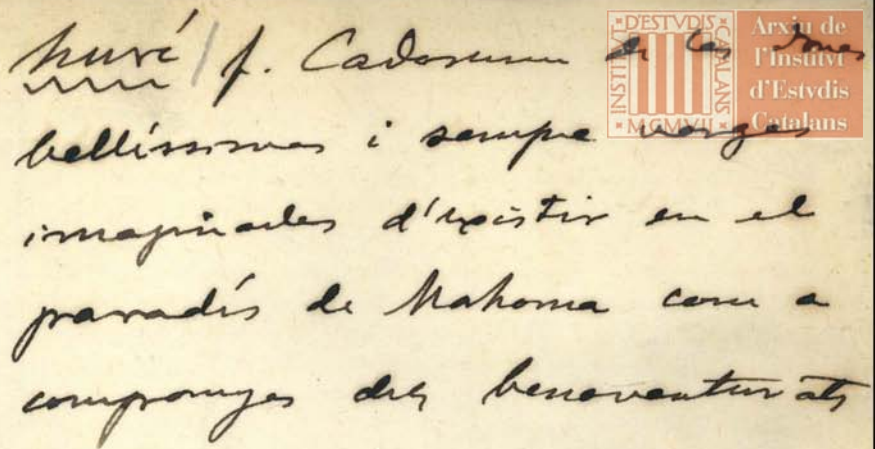 hurí / f. Cadascuna de les dones
bellíssimes i sempre verges
imaginades d'existir en el
paradís de Mahoma com a
companyes dels benaventurats
INSTITVT D'ESTVDIS CATALANS
MCMVII
Arxiu de
l'Institvt
d'Estvdis
Catalans